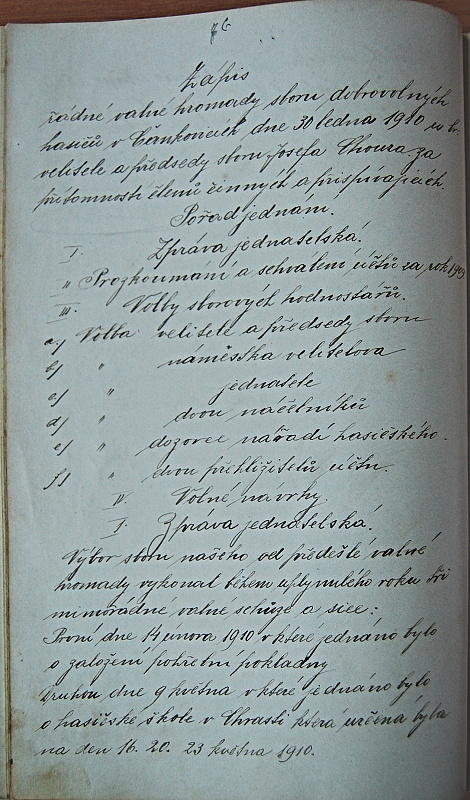 76
Zápis
řádné valné hromady sboru dobrovolných
hasičů v Čankovicích dne 30 ledna 1910 u br.
velitele a předsedy sboru Josefa Choura za
přítomnosti členů činných a přispívajících.
Pořad jednání.
I. Zpráva jednatelská.
II Prozkoumání a schválení účtů za rok 1909
III. Volby sborových hodnostářů.
a) Volba velitele a předsedy sboru
b) " náměstka velitelova
c) " jednatele
d) " dvou náčelníků
e) " dozorce nářadí hasičského.
f) " dvou přehlížitelů účtu.
IV. Volné návrhy.
I. Zpráva jednatelská.
Výbor sboru našeho od předešlé valné
hromady vykonal během uplynulého roku tři
mimořádné valné schůze a sice:
První dne 14 února 1910 v které jednáno bylo
o založení pohřební pokladny
Druhou dne 9 května v které jednáno bylo
o hasičské škole v Chrasti která určena byla
na den 16. 20. 23 května 1910.